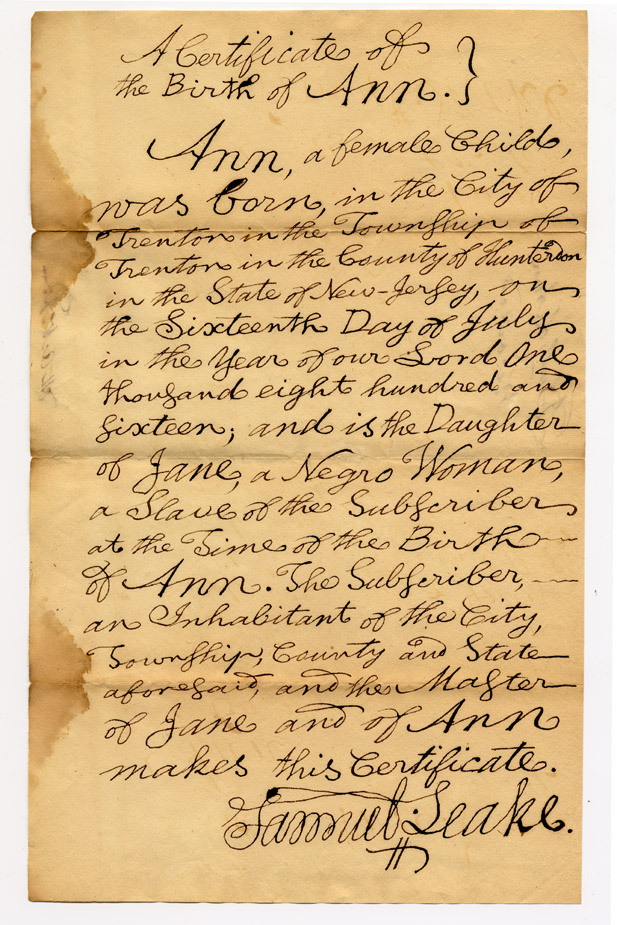 A Certificate of
the Birth of Ann. }
Ann, a female Child,
was born, in the City of
Trenton in the Township of
Trenton in the County of Hunterdon
in the State of New-Jersey, on
the Sixteenth Day of July
in the Year of our Lord One
thousand eight hundred and
sixteen; and is the Daughter
of Jane, a Negro Woman,
a Slave of the Subscriber
at the Time of the Birth
of Ann. The Subscriber,
an Inhabitant of the City,
Township, County and State
aforesaid, and the Master
of Jane and of Ann
makes this Certificate.
Samuel Leake.